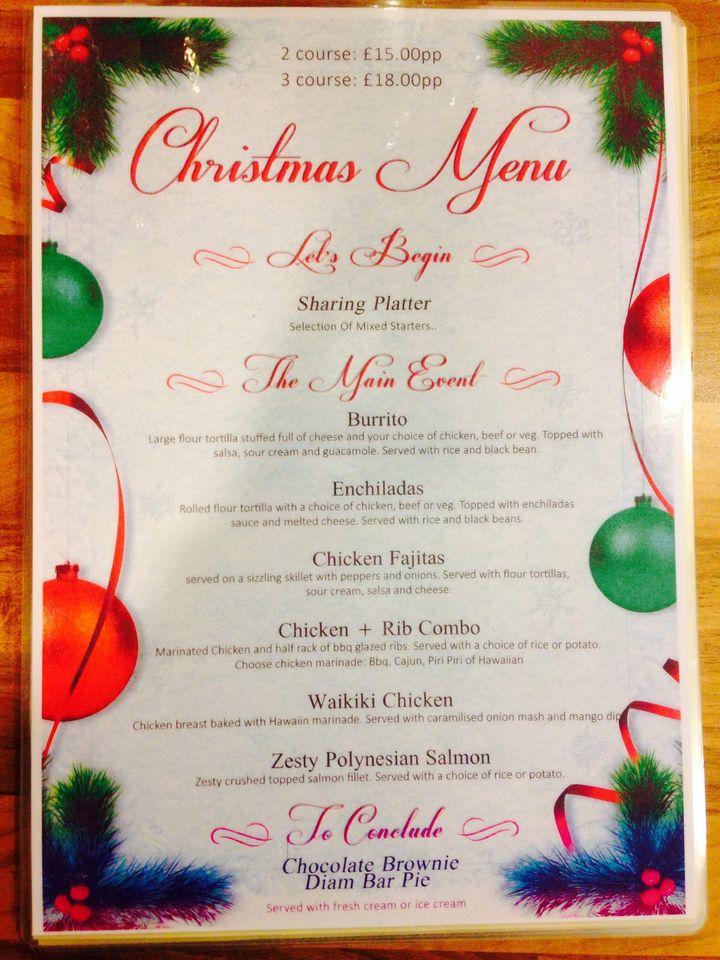 2 course: £15.00pp
3 course: £18.00pp
Christmas Menu
Let's Begin
Sharing Platter
Selection Of Mixed Starters..
The Main Event
Burrito
Large flour tortilla stuffed full of cheese and your choice of chicken, beef or veg. Topped with
salsa, sour cream and guacamole. Served with rice and black bean.
Enchiladas
Rolled flour tortilla with a choice of chicken, beef or veg. Topped with enchiladas
sauce and melted cheese. Served with rice and black beans.
Chicken Fajitas
served on a sizzling skillet with peppers and onions. Served with flour tortillas,
sour cream, salsa and cheese.
Chicken + Rib Combo
Marinated Chicken and half rack of bbq glazed ribs. Served with a choice of rice or potato.
Choose chicken marinade: Bbq, Cajun, Piri Piri of Hawaiian
Waikiki Chicken
Chicken breast baked with Hawaiin marinade. Served with caramilised onion mash and mango dip
Zesty Polynesian Salmon
Zesty crushed topped salmon fillet. Served with a choice of rice or potato.
To Conclude
Chocolate Brownie
Diam Bar Pie
Served with fresh cream or ice cream